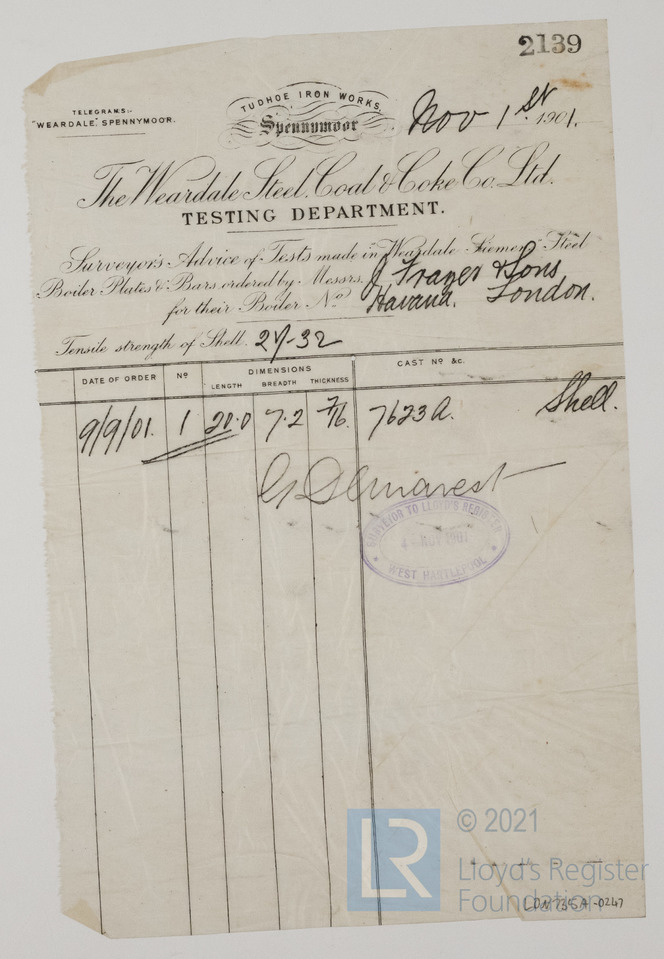 2139
TELEGRAMS:-
"WEARDALE" SPENNYMOOR.
TUDHOE IRON WORKS,
Spennymoor
Nov 1st 1901.
The Weardale Steel, Coal & Coke Co. Ltd.
TESTING DEPARTMENT.
Surveyor's Advice of Tests made in Weardale Siemens Steel
Boiler Plates & Bars ordered by Messrs. J. Frazer & Sons
for their Boiler No. Havana. London.
Tensile strength of Shell. 27-32
DATE OF ORDER No DIMENSIONS CAST No &c.
LENGTH BREADTH THICKNESS
9/9/01. 1 20.0 7.2 7/16 7623A. Shell.
SURVEYOR TO LLOYD'S REGISTER
NOV 1901
WEST HARTLEPOOL
© 2021
LR Lloyd's Register
Foundation
LDN 735A-0247